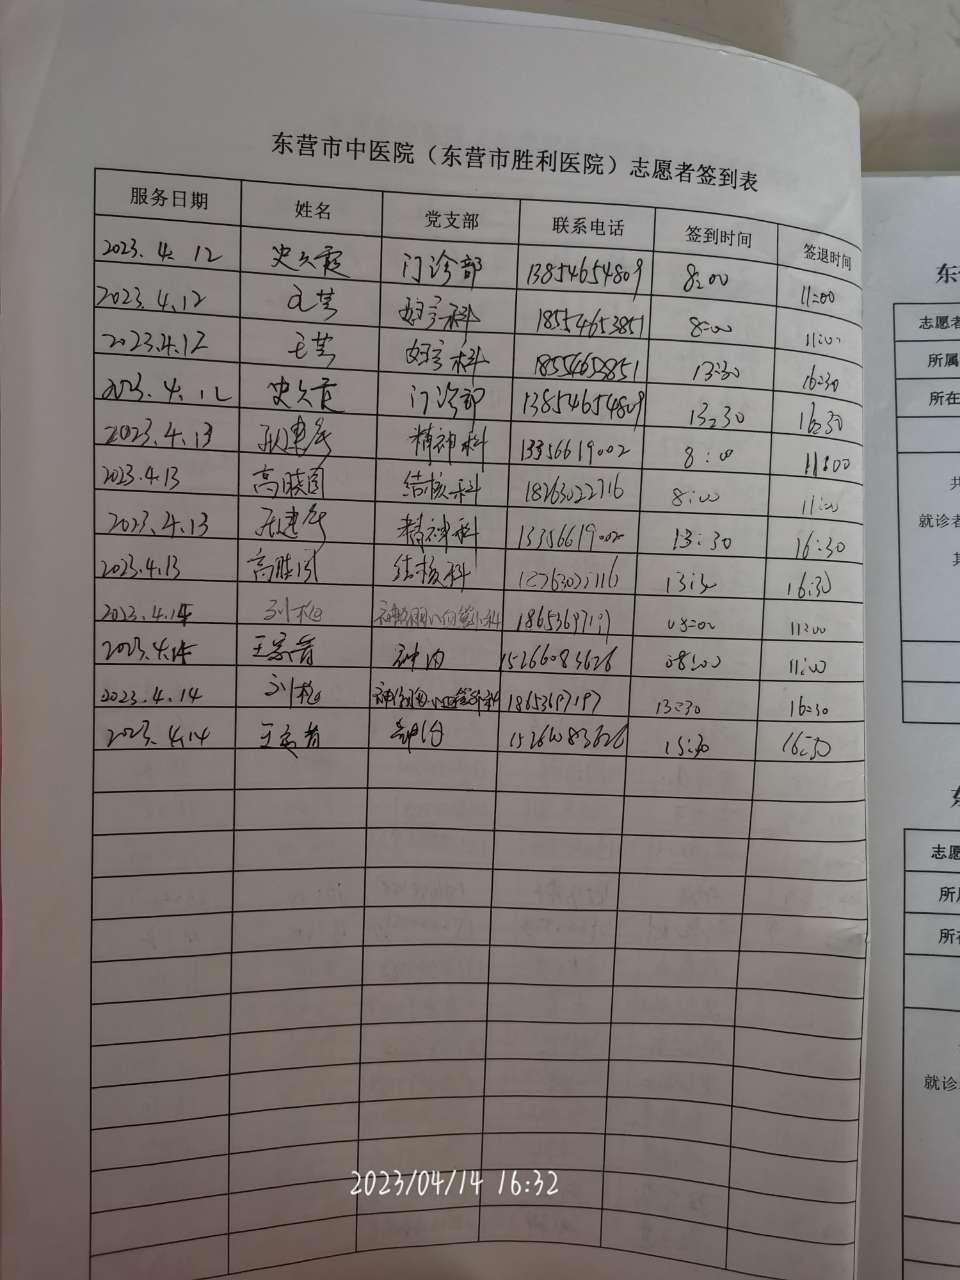 东营市中医院（东营市胜利医院）志愿者签到表
服务日期 姓名 党支部 联系电话 签到时间 签退时间
2023.4.12 史久霞 门诊部 13854654809 8:00 11:00
2023.4.12 妇产科 18554653851 8:00 11:00
2023.4.12 王芸 妇产科 13:30 16:30
2023.4.12 史久霞 门诊部 13854654809 13:30 16:30
2023.4.13 精神科 13356619002 8:00 11:00
2023.4.13 结核科 18263022716 8:00 11:00
2023.4.13 精神科 13356619002 13:30 16:30
2023.4.13 结核科 13:30 16:30
2023.4.14 08:00 11:00
2023.4.14 神内 15266083626 08:00 11:00
2023.4.14 18653697197 13:30 16:30
2023.4.14 神内 16:30
2023/04/14 16:32
东营
志愿者
所属
所在
共
就诊者
其
东
志愿
所属
所在
就诊